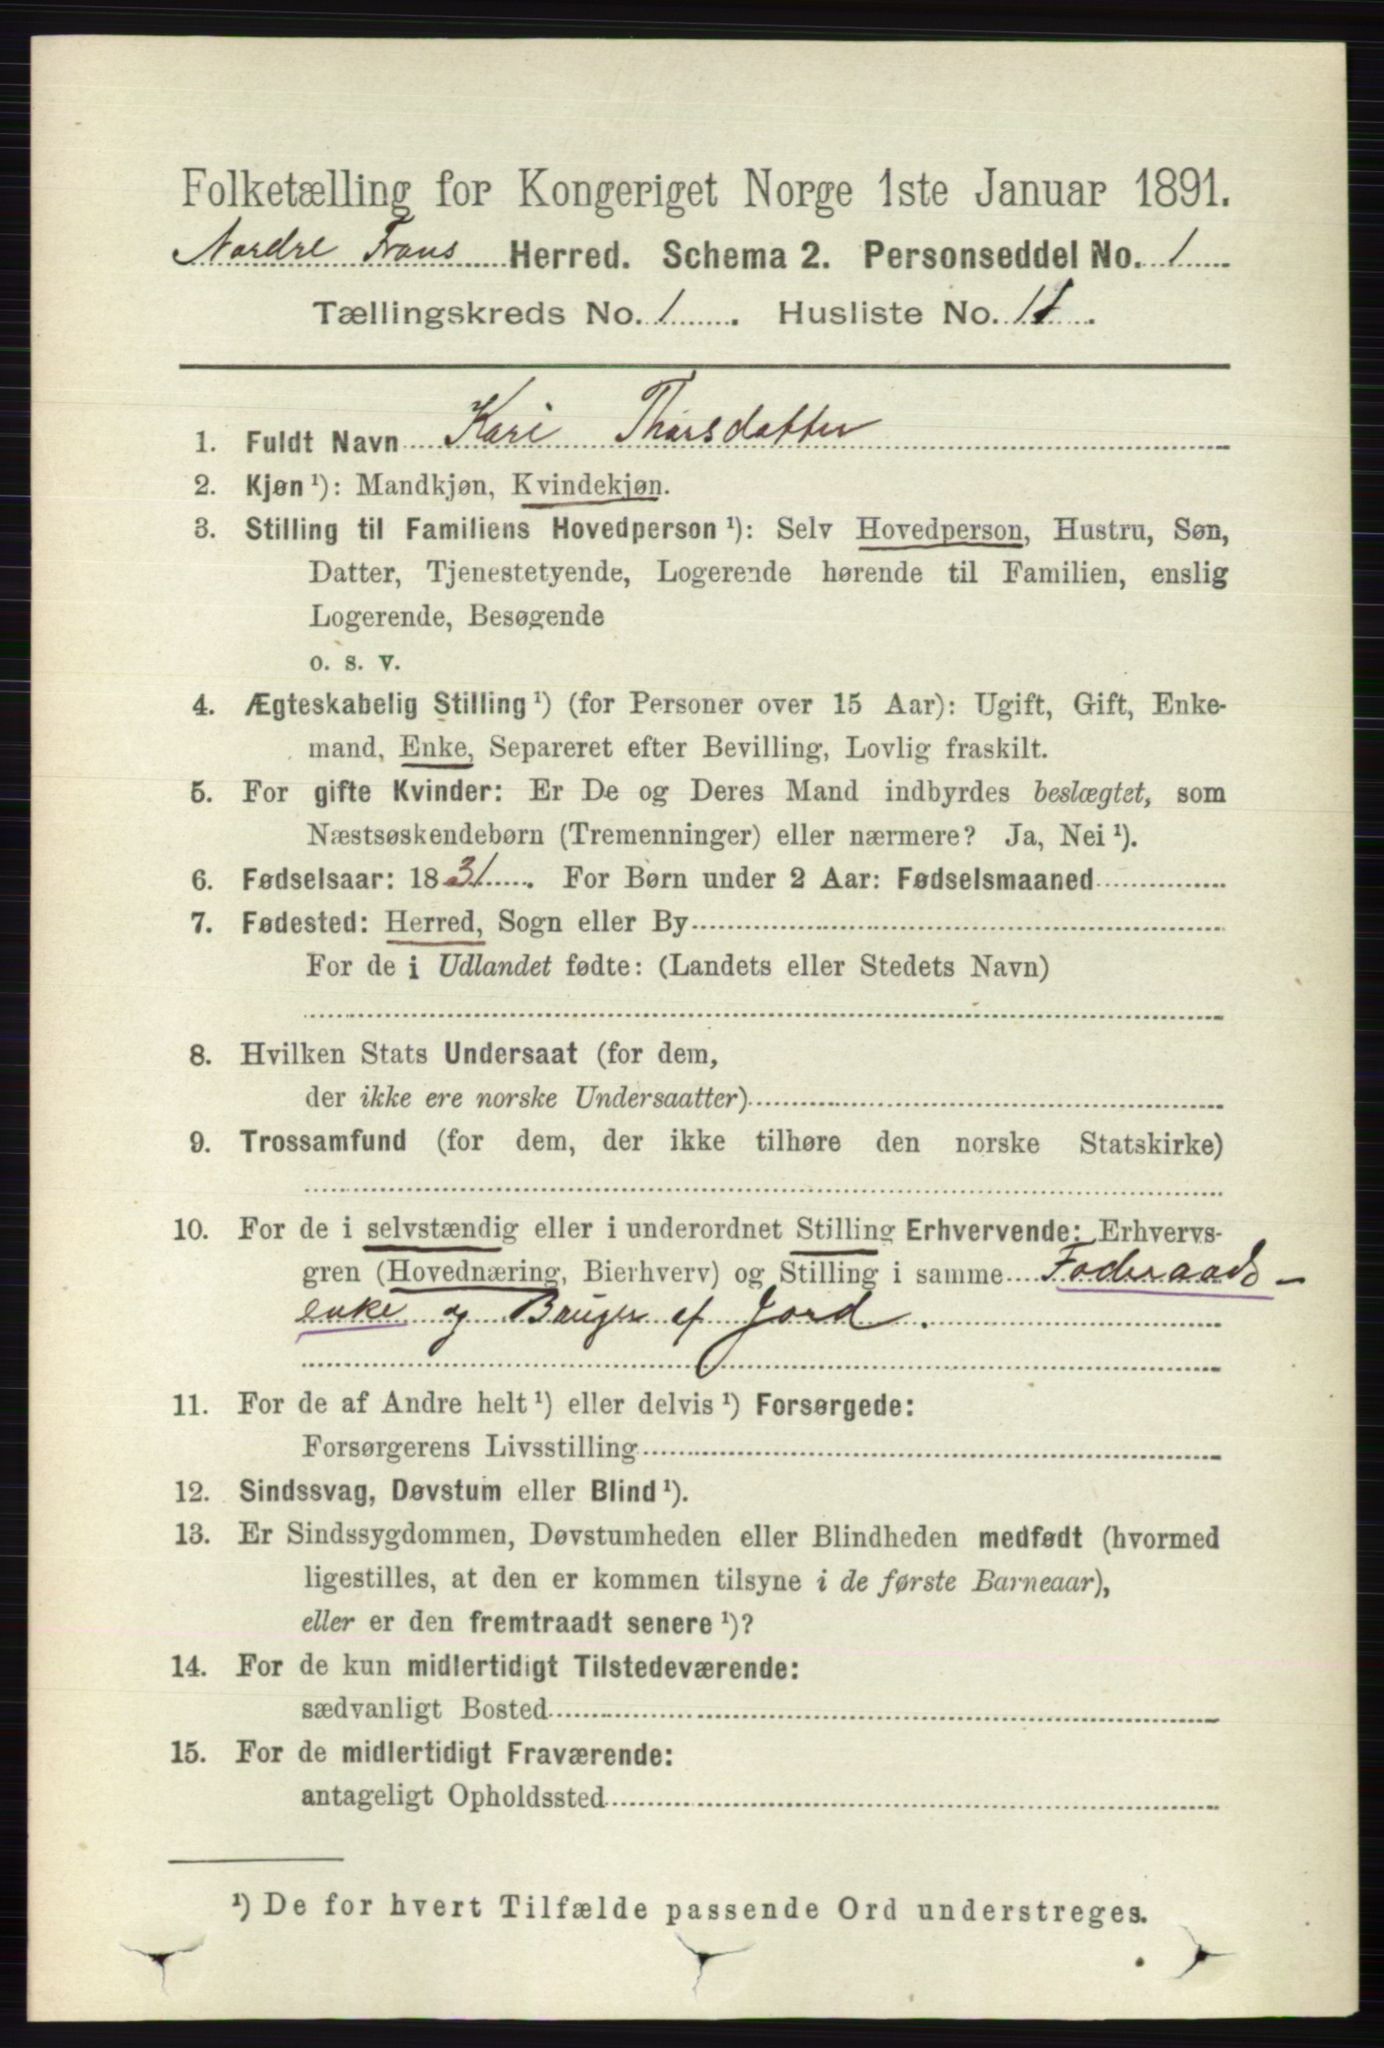 Folketælling for Kongeriget Norge 1ste Januar 1891.
Nordre Frons Herred. Schema 2. Personseddel No. 1
Tællingskreds No. 1 . Husliste No. 11 .
1. Fuldt Navn Kari Thorsdatter
2. Kjøn ¹): Mandkjøn, Kvindekjøn.
3. Stilling til Familiens Hovedperson ¹): Selv Hovedperson, Hustru, Søn,
Datter, Tjenestetyende, Logerende hørende til Familien, enslig
Logerende, Besøgende
o. s. v.
4. Ægteskabelig Stilling ¹) (for Personer over 15 Aar): Ugift, Gift, Enke-
mand, Enke, Separeret efter Bevilling, Lovlig fraskilt.
5. For gifte Kvinder: Er De og Deres Mand indbyrdes beslægtet, som
Næstsøskendebørn (Tremenninger) eller nærmere? Ja, Nei ¹).
6. Fødselsaar: 1831 . For Børn under 2 Aar: Fødselsmaaned
7. Fødested: Herred, Sogn eller By
For de i Udlandet fødte: (Landets eller Stedets Navn)
8. Hvilken Stats Undersaat (for dem,
der ikke ere norske Undersaatter)
9. Trossamfund (for dem, der ikke tilhøre den norske Statskirke)
10. For de i selvstændig eller i underordnet Stilling Erhvervende: Erhvervs-
gren (Hovednæring, Bierhverv) og Stilling i samme Foderaads-
enke og Bruger af Jord.
11. For de af Andre helt ¹) eller delvis ¹) Forsørgede:
Forsørgerens Livsstilling
12. Sindssvag, Døvstum eller Blind ¹).
13. Er Sindssygdommen, Døvstumheden eller Blindheden medfødt (hvormed
ligestilles, at den er kommen tilsyne i de første Barneaar),
eller er den fremtraadt senere ¹)?
14. For de kun midlertidigt Tilstedeværende:
sædvanligt Bosted
15. For de midlertidigt Fraværende:
antageligt Opholdssted
¹) De for hvert Tilfælde passende Ord understreges.